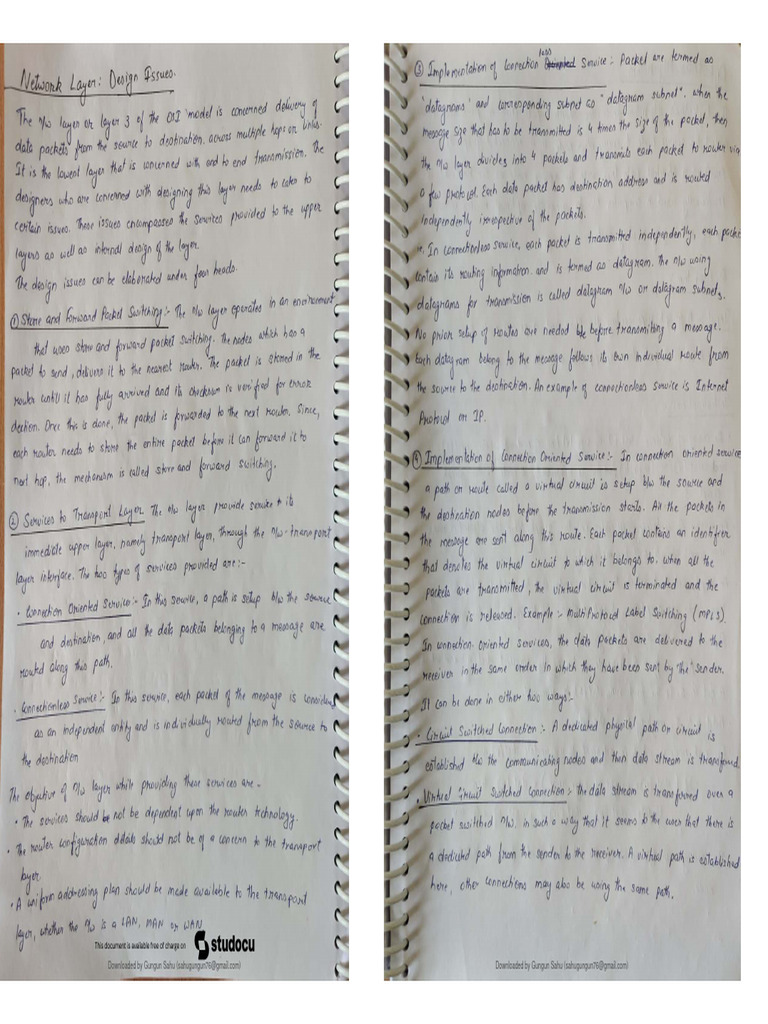 Network Layer: Design Issues.
The n/w layer or layer 3 of the OSI model is concerned delivery of
data packets from the source to destination. across multiple hops or links.
It is the lowest layer that is concerned with end to end transmission. The
designers who are concerned with designing this layer needs to cater to
certain issues. These issues encompasses the services provided to the upper
layers as well as internal design of the layer
The design issues can be elaborated under four heads.
① Store and Forward Packet Switching:- The n/w layer operates in an environment
that uses store and forward packet switching. The nodes which has a
packet to send, delivers it to the nearest router. The packet is stored in the
router until it has fully arrived and its checksum is verified for error
dection. Once this is done, the packet is forwarded to the next router. Since,
each router needs to store the entire packet before it can forward it to
next hop, the mechanism is called store and forward switching.
② Services to Transport Layer The n/w layer provide service its
immediate upper layer, namely transport layer, through the n/w-transport
layer interface. The two types of services provided are:-
• Connection Oriented Service:- In this service, a path is setup b/w the source
and destination, and all the data packets belonging to a message are
routed along this path.
• Connectionless Service:- In this service, each packet of the message is
as an independent entity and is individually routed from the source to
the destination
The objective of n/w layer while providing these services are -
• The services should not be dependent upon the router technology.
• The router configuration details should not be of a concern to the transport
layer
• A uniform addressing plan should be made available to the transport
layer, whether the n/w is a LAN, MAN or WAN
This document is available free of charge on studocu
Downloaded by Gungun Sahu (sahugungun76@gmail.com)
③ Implementation of Connection less Service:- Packet are termed as
'datagrams' and corresponding subnet as "datagram subnet". when the
message size that has to be transmitted is 4 times the size of the packet, then
the n/w layer divides into 4 packets and transmits each packet to router via
a few protocol. Each data packet has destination address and is routed
independently irrespective of the packets.
In connectionless service, each packet is transmitted independently, each packet
contain its routing information. and is termed as datagram. The n/w using
datagrams for transmission is called datagram n/w or datagram subnets.
No prior setup of routes are needed before transmitting a message.
Each datagram belong to the message follows its own individual route from
the source to the destination. An example of connectionless service is Internet
Protocol or IP.
④ Implementation of Connection Oriented Service:- In connection oriented service
a path or route called a virtual circuit is setup b/w the source and
the destination nodes before the transmission starts. All the packets in
the message are sent along this route. Each packet contains an identifier
that denotes the virtual circuit to which it belongs to. when all the
packets are transmitted, the virtual circuit is terminated and the
connection is released. Example:- MultiProtocol Label Switching (MPLS)
In connection oriented services, the data packets are delivered to the
receiver in the same order in which they have been sent by the sender.
It can be done in either two ways:-
• Circuit Switched Connection:- A dedicated physical path or circuit is
established b/w the communicating nodes and then data stream is transfered.
• Virtual Circuit Switched Connection:- the data stream is transfered over a
packet switched n/w, in such a way that it seems to the user that there is
a dedicated path from the sender to the receiver. A virtual path is established
here, other connections may also be using the same path.
Downloaded by Gungun Sahu (sahugungun76@gmail.com)